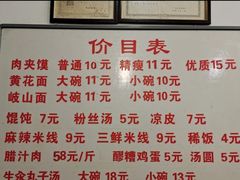 价目表
肉夹馍 普通10元 精瘦11元 优质15元
黄花面 大碗11元 小碗10元
岐山面 大碗11元 小碗10元
馄饨7元 粉丝汤5元 凉皮7元
麻辣米线9元 三鲜米线9元 稀饭4元
腊汁肉58元/斤 醪糟鸡蛋5元 汤圆5元
生汆丸子汤 大碗18元 小碗13元